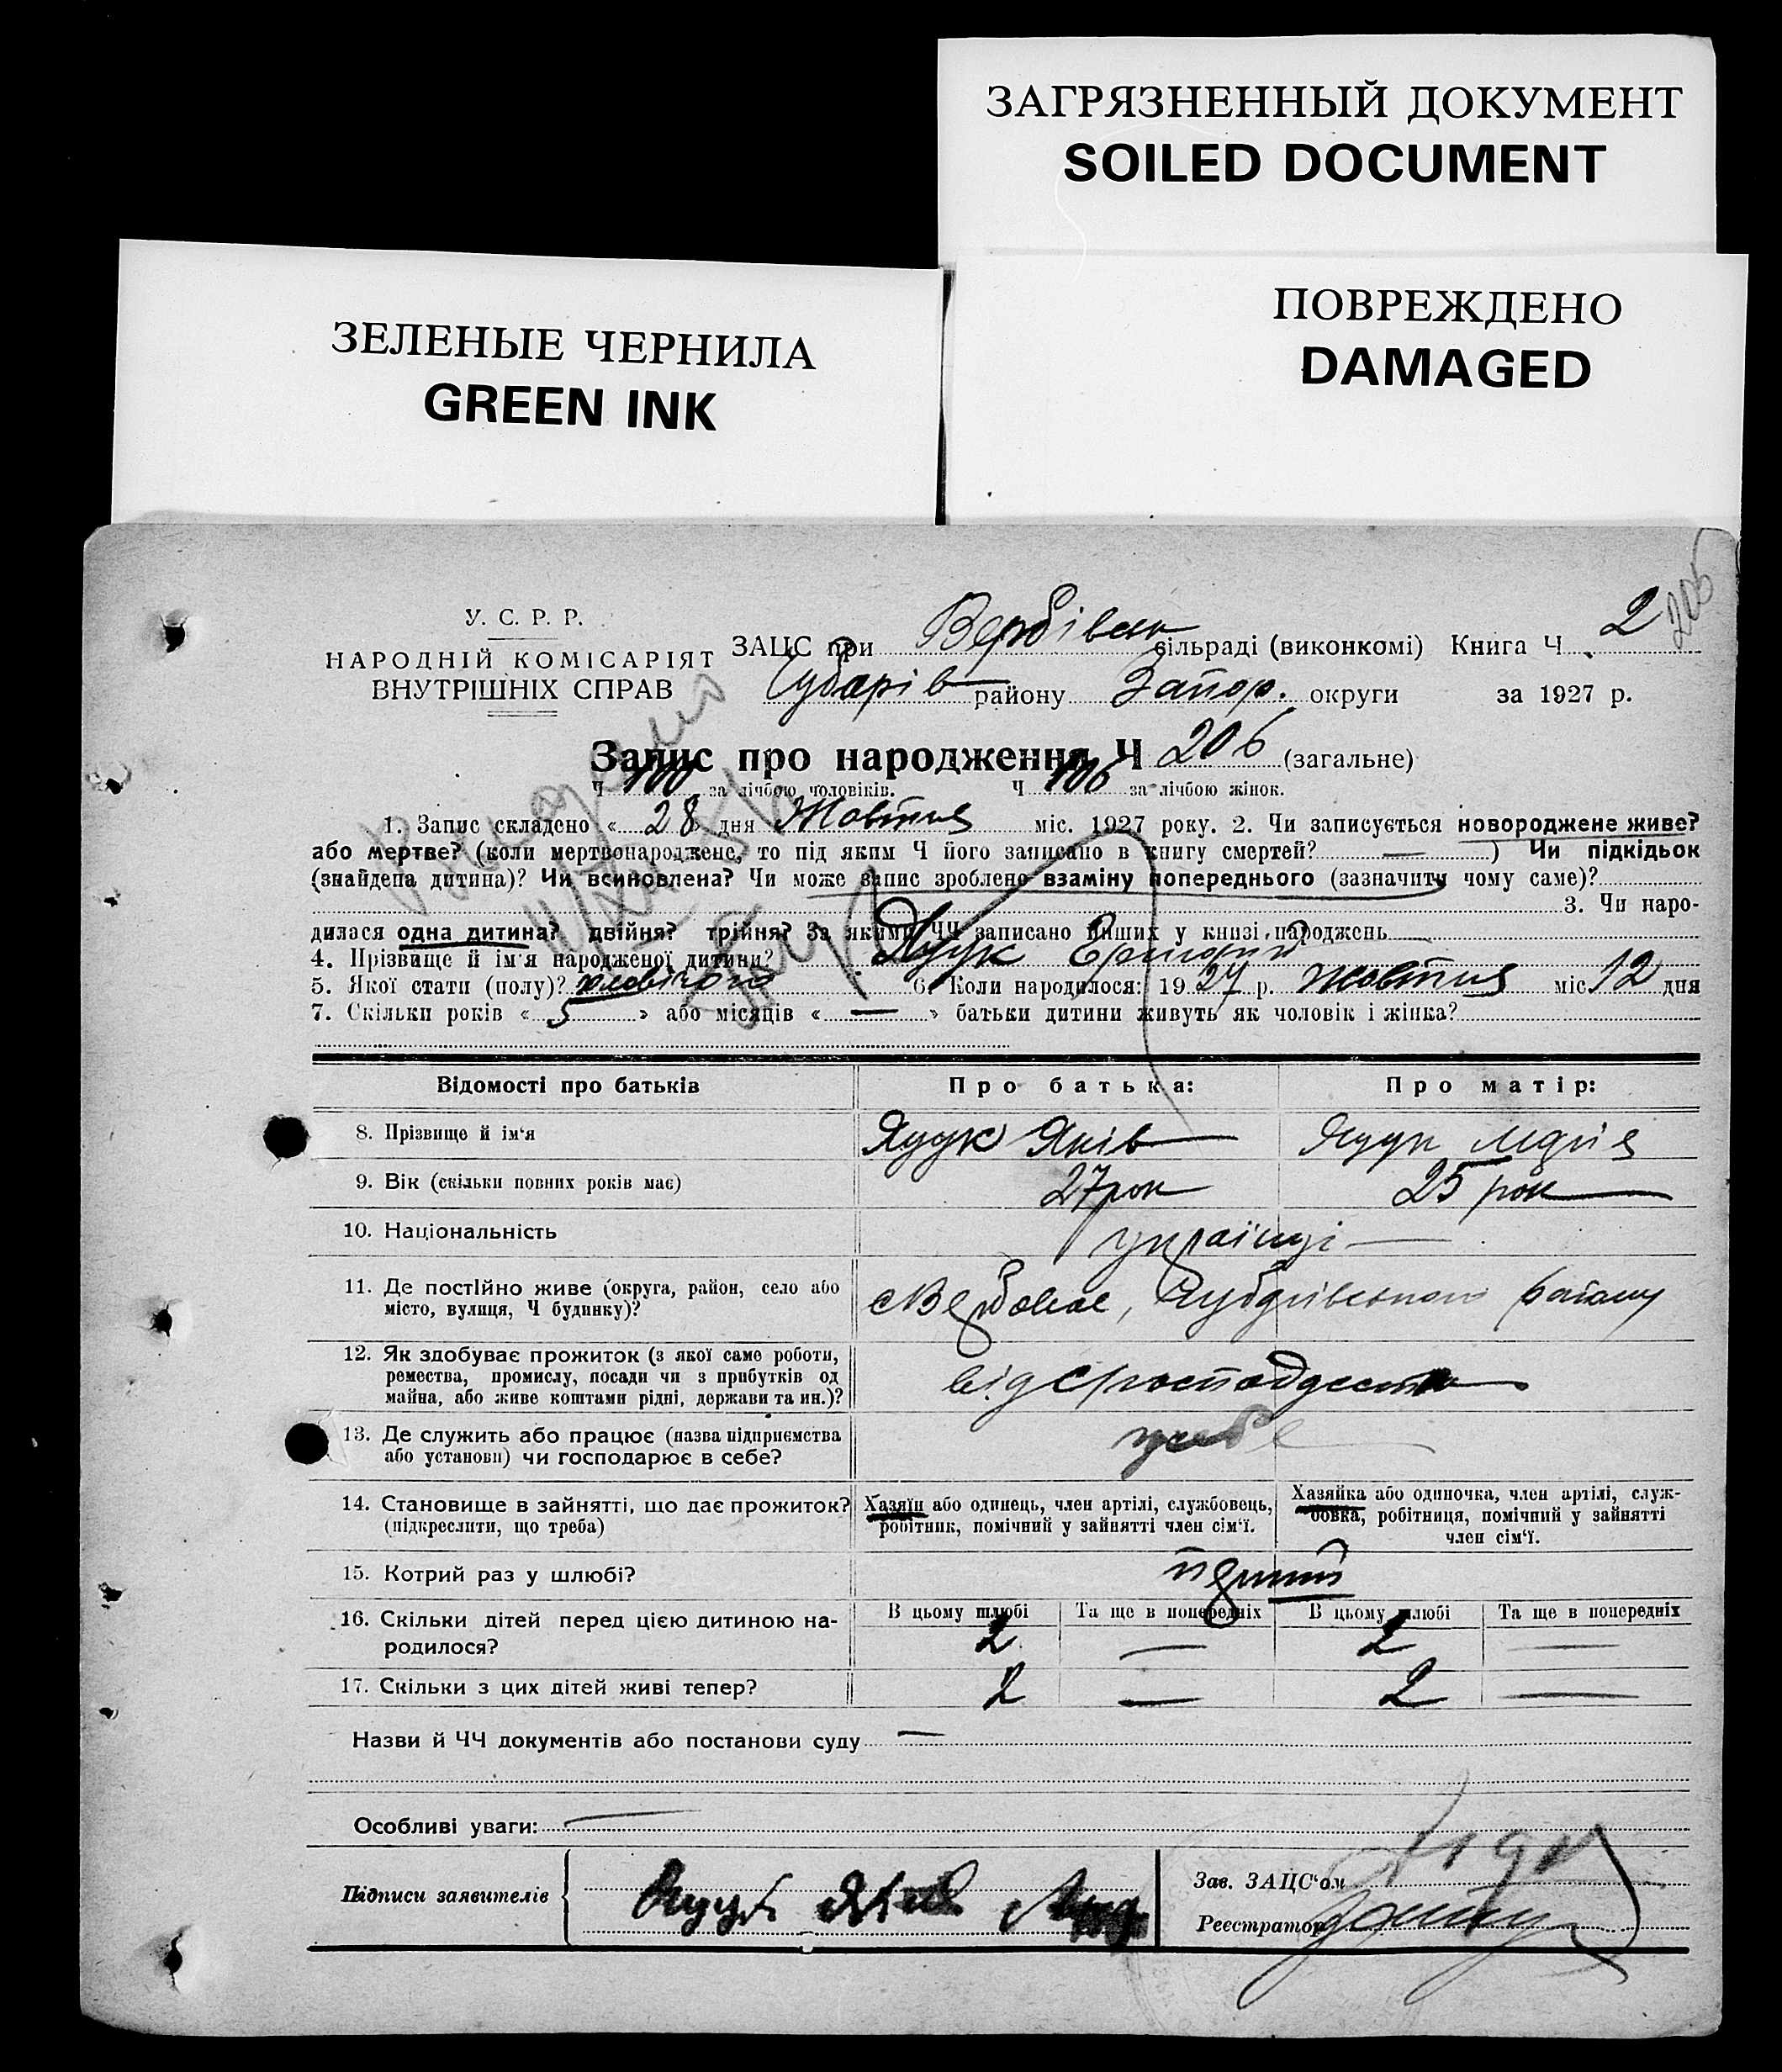 ЗАГРЯЗНЕННЫЙ ДОКУМЕНТ
SOILED DOCUMENT
ПОВРЕЖДЕНО
DAMAGED
ЗЕЛЕНЫЕ ЧЕРНИЛА
GREEN INK
206
У. С. Р. Р.
НАРОДНІЙ КОМІСАРІЯТ
ВНУТРІШНІХ СПРАВ
ЗАЦС при Вербівск сільраді (виконкомі) Книга Ч. 2
Чубарів району Запор. округи за 1927 р.
Запис про народження Ч 206 (загальне)
Ч 100 за лічбою чоловіків. Ч 106 за лічбою жінок.
1. Запис складено « 28 » дня Жовтня міс. 1927 року. 2. Чи записується новороджене живе?
або мертве? (коли мертвонароджене, то під яким Ч його записано в книгу смертей? — ) Чи підкідьок
(знайдена дитина)? Чи всиновлена? Чи може запис зроблено взаміну попереднього (зазначити чому саме)?
3. Чи наро-
дилася одна дитина? двійня? трійня? За якими ЧЧ записано инших у книзі народжень
4. Прізвище й ім'я народженої дитини? Яцук Григорій
5. Якої стати (полу)? чоловічої 6. Коли народилося: 1927 р. жовтня міс 12 дня
7. Скільки років « 5 » або місяців « — » батьки дитини живуть як чоловік і жінка?
Відомості про батьків Про батька: Про матір:
8. Прізвище й ім'я Яцук Яків Яцук Марія
9. Вік (скільки повних років має) 27 рок 25 рок
10. Національність українці
11. Де постійно живе (округа, район, село або
місто, вулиця, Ч будинку)? с Вербове, Чубарівського району
12. Як здобуває прожиток (з якої саме роботи,
ремества, промислу, посади чи з прибутків од
майна, або живе коштами рідні, держави та ин.)?
13. Де служить або працює (назва підприємства
або установи) чи господарює в себе? у себе
14. Становище в зайнятті, що дає прожиток?
(підкреслити, що треба)
Хазяїн або одинець, член артілі, службовець,
робітник, помічний у зайнятті член сім'ї.
Хазяйка або одиночка, член артілі, служ-
бовка, робітниця, помічний у зайнятті
член сім'ї.
15. Котрий раз у шлюбі?
16. Скільки дітей перед цією дитиною на-
родилося?
В цьому шлюбі Та ще в попередніх В цьому шлюбі Та ще в попередніх
2 — 2 —
17. Скільки з цих дітей живі тепер? 2 — 2 —
Назви й ЧЧ документів або постанови суду —
Особливі уваги: —
Підписи заявителів Яцук Яків
Зав. ЗАЦС'ом
Реєстратор